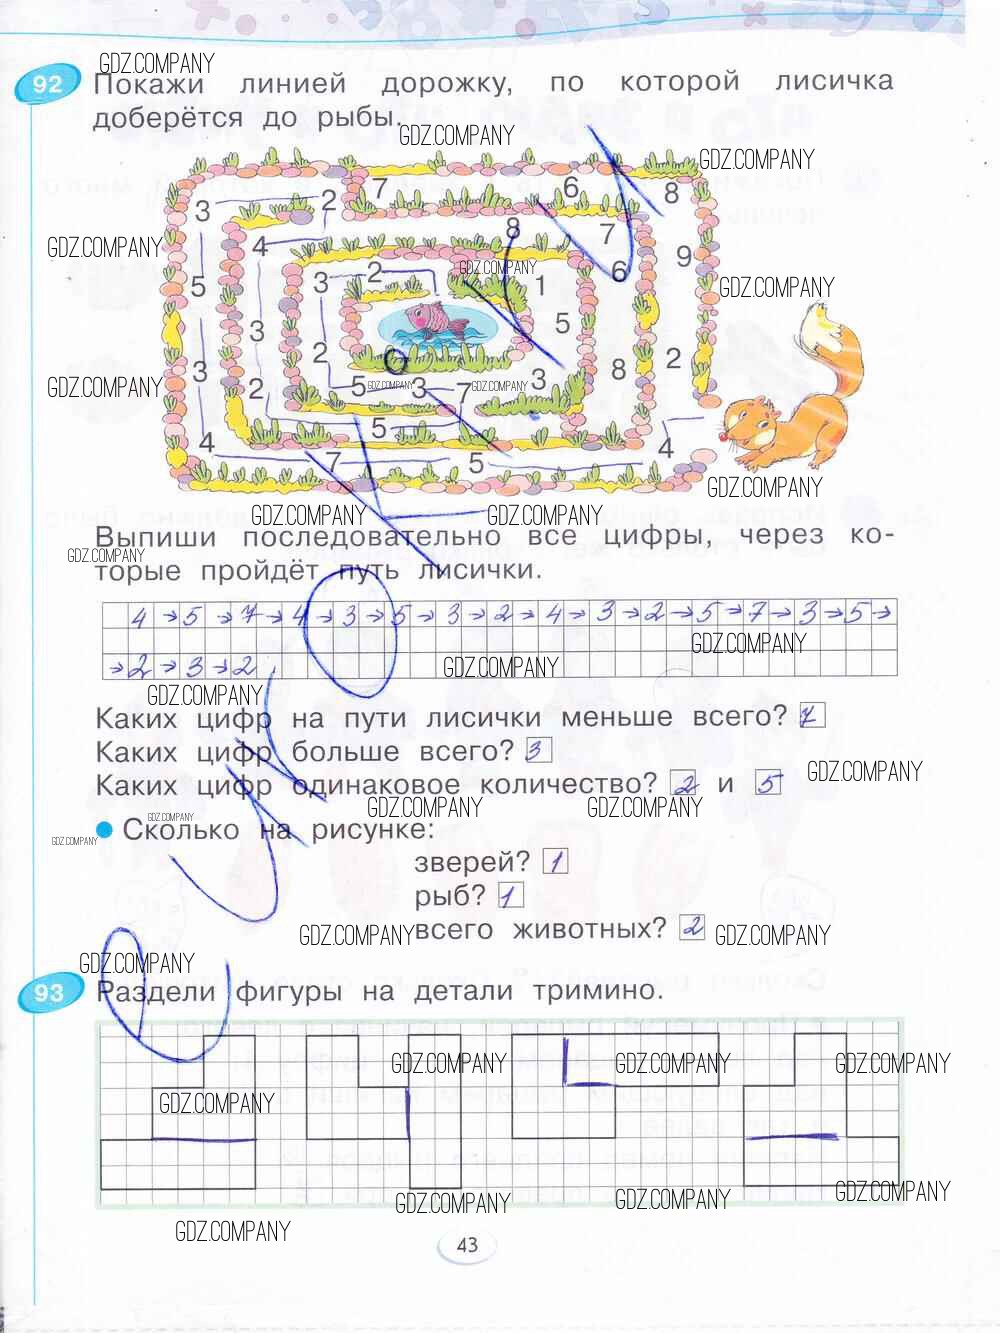 GDZ.COMPANY
92 Покажи линией дорожку, по которой лисичка
доберётся до рыбы.
GDZ.COMPANY
GDZ.COMPANY
3 2 7 6 8
GDZ.COMPANY
4 8 7 9
GDZ.COMPANY
5 3 2 1 6
GDZ.COMPANY
3 2 5
GDZ.COMPANY
3 2 5 3 7 3 8 2
GDZ.COMPANY
GDZ.COMPANY
4 7 5 5 4
GDZ.COMPANY
GDZ.COMPANY
GDZ.COMPANY
Выпиши последовательно все цифры, через ко-
GDZ.COMPANY
торые пройдёт путь лисички.
4→5→7→4→3→5→3→2→4→3→2→5→7→3→5→
→2→3→2
GDZ.COMPANY
GDZ.COMPANY
GDZ.COMPANY
Каких цифр на пути лисички меньше всего? 7
Каких цифр больше всего? 3
GDZ.COMPANY
Каких цифр одинаковое количество? 2 и 5
GDZ.COMPANY
GDZ.COMPANY
GDZ.COMPANY
Сколько на рисунке:
GDZ.COMPANY
зверей? 1
рыб? 1
всего животных? 2
GDZ.COMPANY
GDZ.COMPANY
GDZ.COMPANY
93 Раздели фигуры на детали тримино.
GDZ.COMPANY
GDZ.COMPANY
GDZ.COMPANY
GDZ.COMPANY
GDZ.COMPANY
GDZ.COMPANY
GDZ.COMPANY
GDZ.COMPANY
43